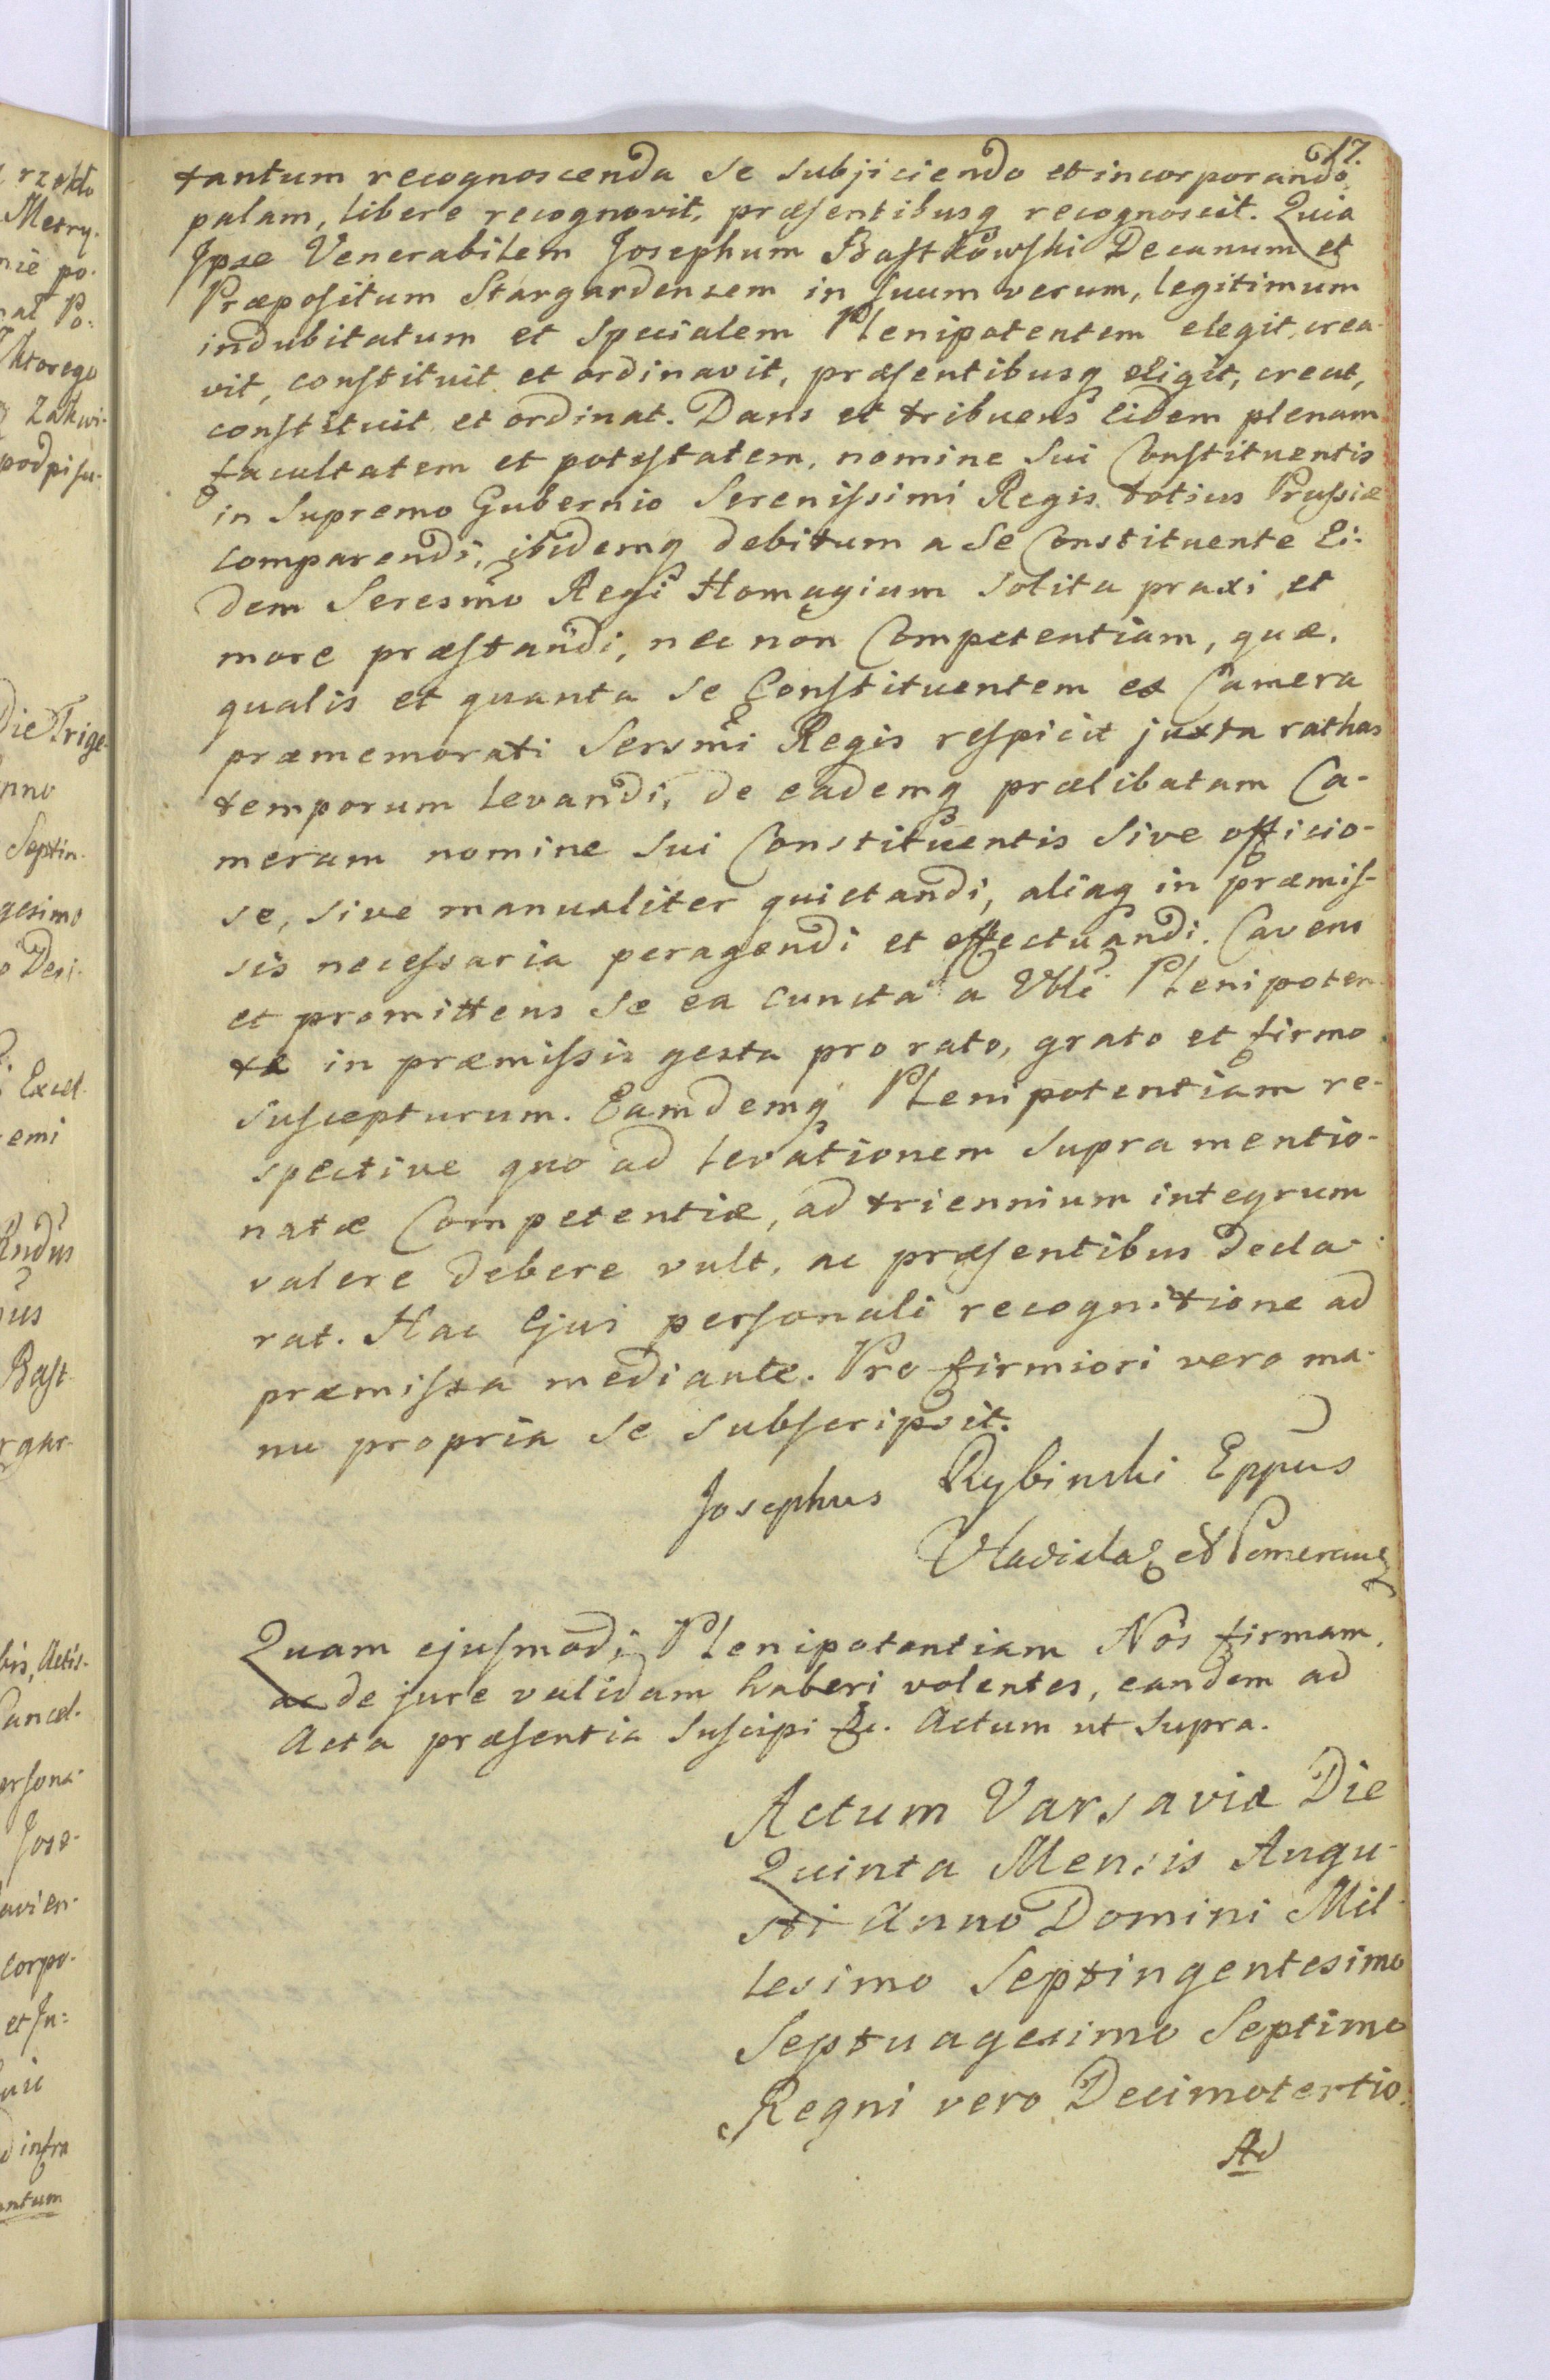 17.
tantum recognoscenda se subjiciendo et incorporando
palam, libere recognovit, præsentibusq recognoscit. Quia
Ipse Venerabilem Josephum Bastkowski Decanum et
Præpositum Stargardensem in suum verum, legitimum
indubitatum et specialem Plenipotentem elegit, crea-
vit, constituit et ordinavit, præsentibusq eligit, creat,
constituit et ordinat. Dans et tribuens eidem plenam
facultatem et potestatem, nomine sui Constituentis
in Supremo Gubernio Serenissimi Regis totius Prussiæ
comparendi, ibidemq debitum a se Constituente Ei-
dem Seresmo Regi Homagium solita praxi et
more præstandi, nec non Competentiam, quæ,
qualis et quanta se Constituentem ex Camera
præmemorati Sersmi Regis respicit juxta rathas
temporum levandi, de eademq prælibatam Ca-
meram nomine sui Constituentis sive officio-
se, sive manualiter quietandi, aliaq in præmis-
sis necessaria peragendi et effectuandi. Cavens
et promittens se ea cuncta a Vbli Plenipoten
te in præmissis gesta pro rato, grato et firmo
suscepturum. Eamdemq Plenipotentiam re-
spective quo ad levationem supra mentio-
natæ Competentiæ, ad triennium integrum
valere debere vult, ac præsentibus decla-
rat. Hac Ejus personali recognitione ad
præmissa mediante. Pro firmiori vero ma-
nu propria se subscripsit.
Josephus Rybinski Eppus
Vladisla et Pomeran
Quam ejusmodi Plenipotentiam Nos firmam,
ac de jure validam haberi volentes, eandem ad
Acta præsentia suscipi &c. Actum ut supra.
Actum Varsaviæ Die
Quinta Mensis Augu-
sti Anno Domini Mil-
lesimo Septingentesimo
Septuagesimo Septimo
Regni vero Decimotertio.
Ad